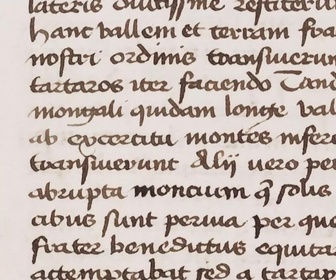 lateris ductissime restiteru
hanc vallem et terram fra
nostri ordinis transiuerun
tartaros iter faciendo Tand
mongali quidam longe va
ab exercitu montes infer
transiuerunt Alij uero pe
abrupta moncium q̄ solis
cibus sunt peruia per qu
frater benedictus equita
attemptabat sed a tarta